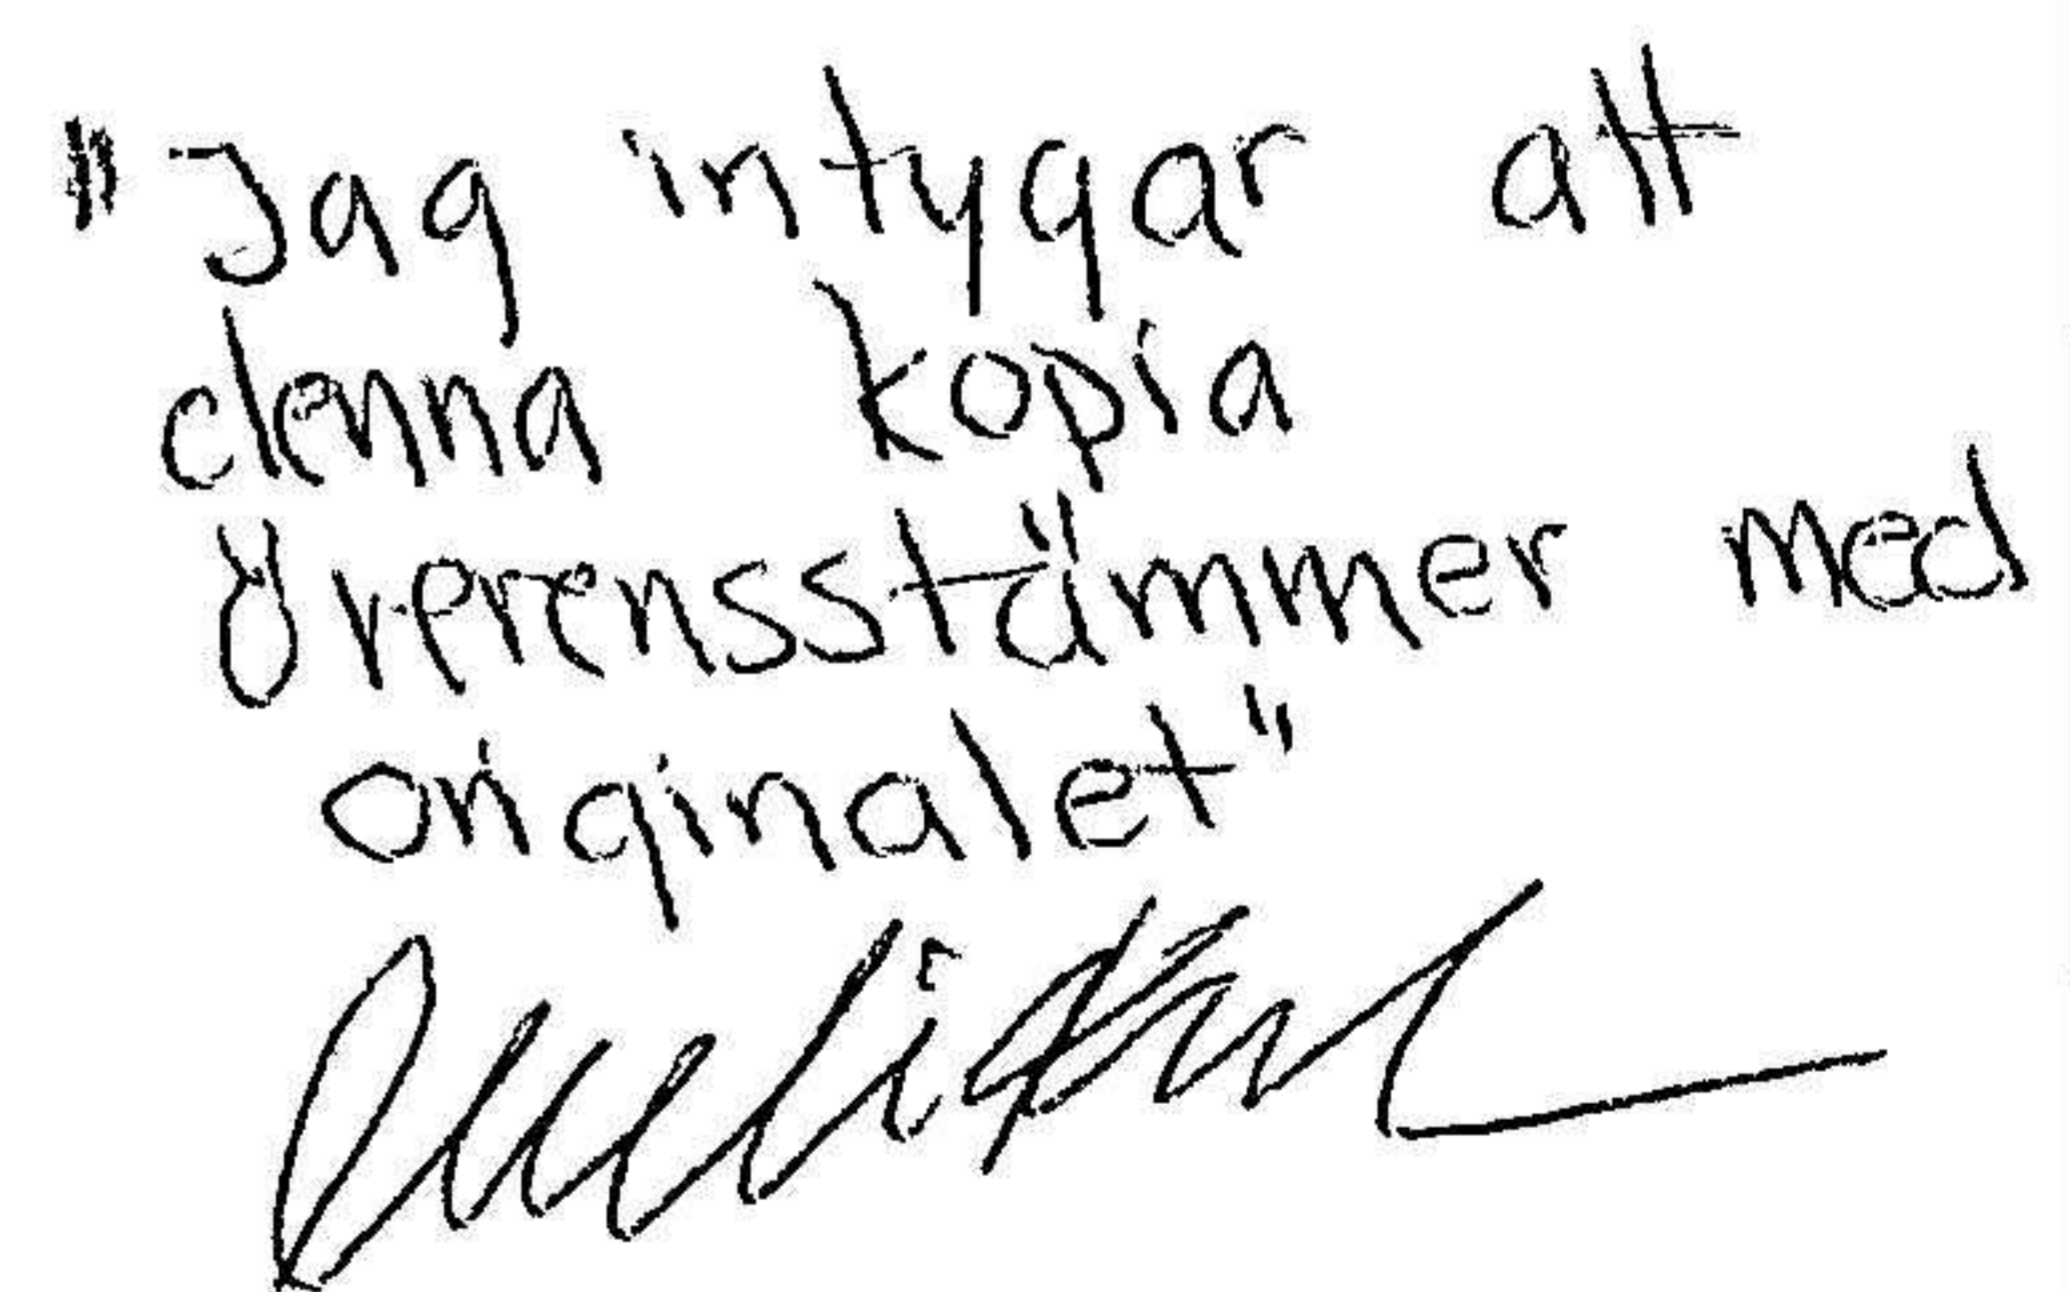 "Jag intygar att
denna kopia
överensstämmer med
originalet"